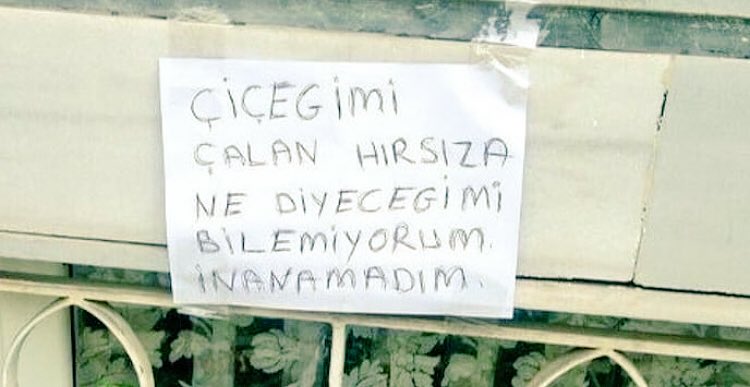 ÇİÇEGİMİ
ÇALAN HIRSIZA
NE DİYECEGİMİ
BİLEMİYORUM.
İNANAMADIM.